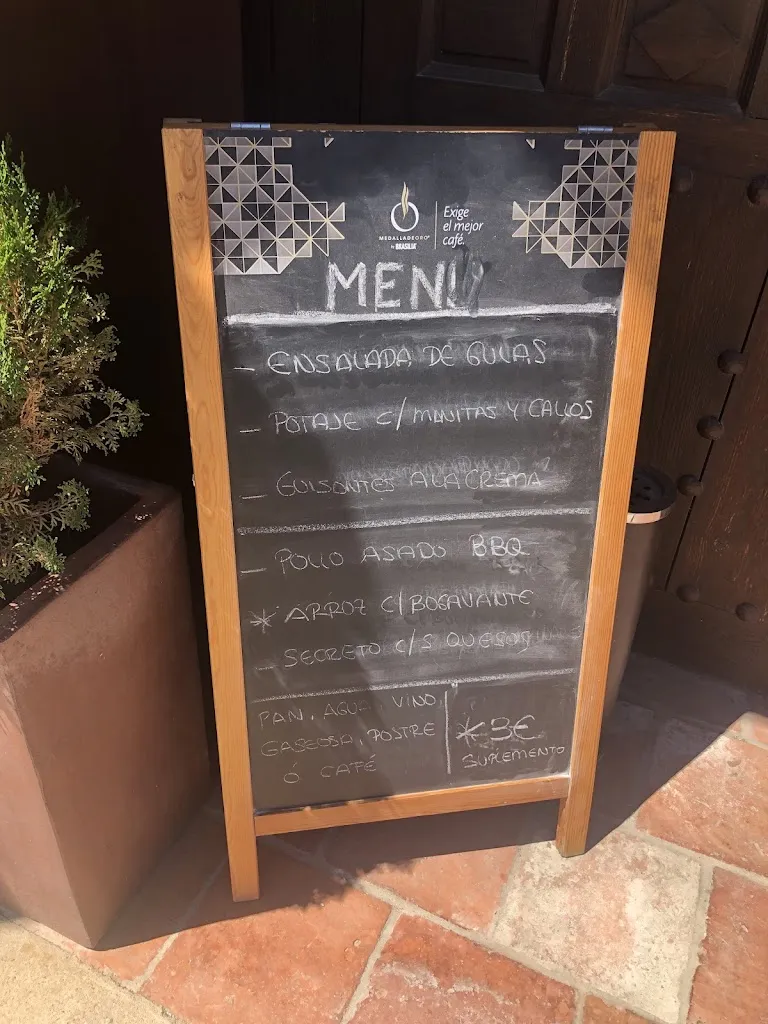 MEDALLADEORO
by BRASILIA
Exige
el mejor
café.
MENÚ
- ENSALADA DE GULAS
- POTAJE C/ MANITAS Y CALLOS
- GUISANTES A LA CREMA
- POLLO ASADO BBQ
* ARROZ C/ BOGAVANTE
- SECRETO C/S QUESOS
PAN, AGUA, VINO,
GASEOSA, POSTRE
Ó CAFÉ
* 3€
SUPLEMENTO